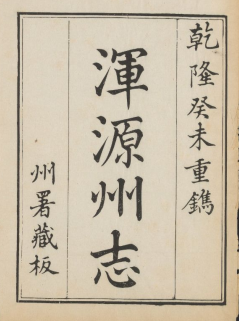 乾隆癸未重鐫
渾源州志
州署藏板